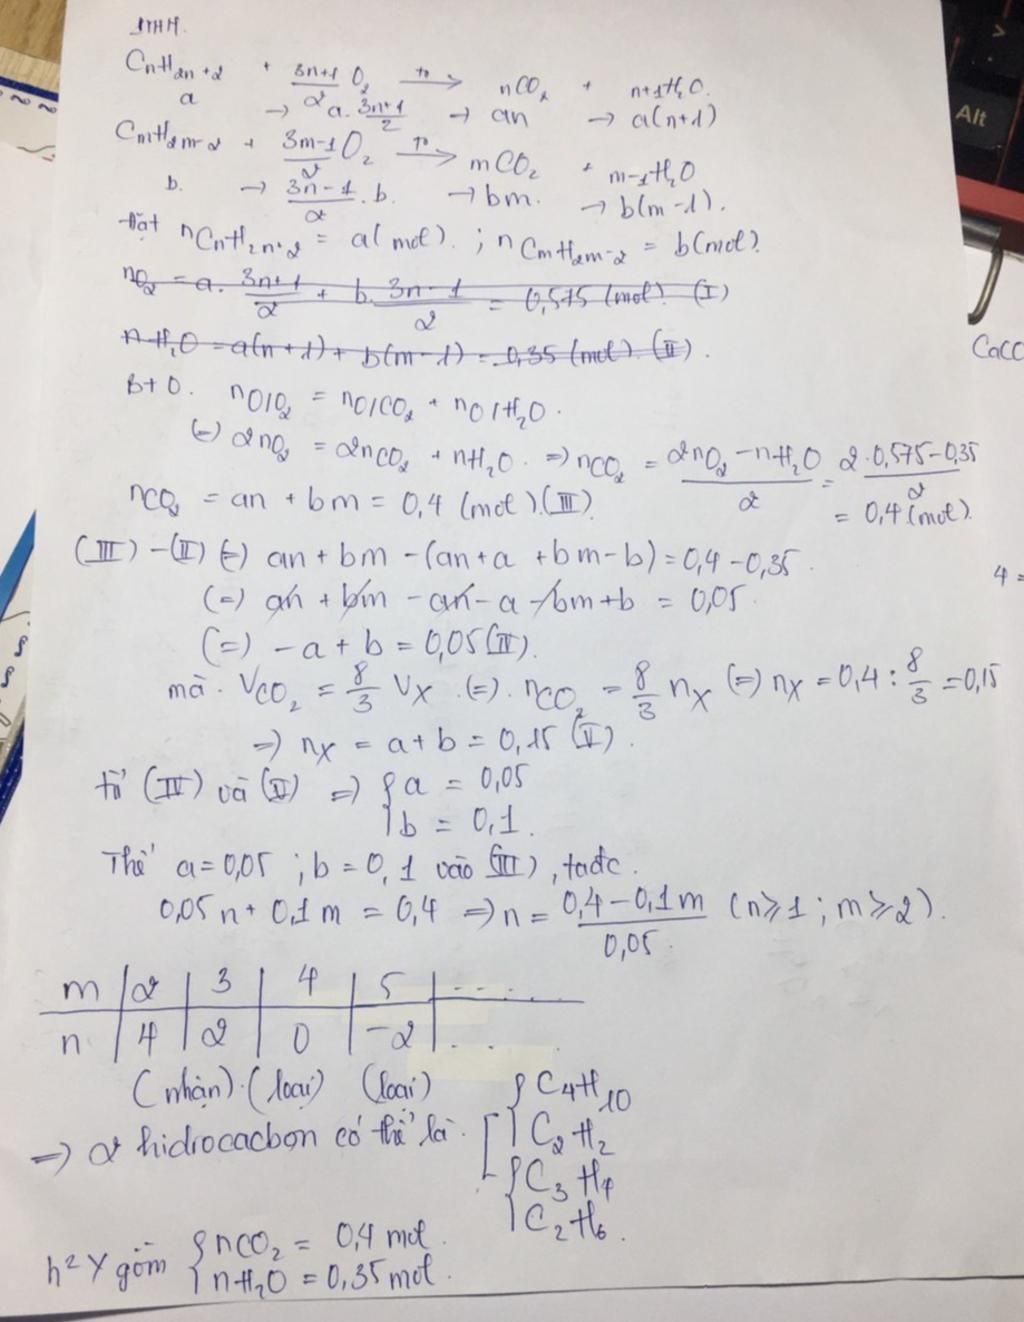 PTHH.
CnH2n+2 + 3n+1/2 O2 t° → nCO2 + n+1H2O.
a → a. 3n+1/2 → an → a(n+1)
CmH2m-2 + 3m-1/2 O2 t° → mCO2 + m-1H2O
b. → 3n-1/2 .b. → bm. → b(m-1).
Đặt nCnH2n+2 = a(mol). ; nCmH2m-2 = b(mol).
nO2 = a. 3n+1/2 + b. 3n-1/2 = 0,575 (mol). (I)
nH2O = a(n+1) + b(m-1) = 0,35 (mol). (II).
BTO. nO/O2 = nO/CO2 + nO/H2O.
(=) 2nO2 = 2nCO2 + nH2O. => nCO2 = 2nO2 - nH2O/2 = 2.0,575-0,35/2
nCO2 = an + bm = 0,4 (mol).(III). = 0,4(mol).
(III) - (II) (=) an + bm - (an+a +bm-b) = 0,4-0,35.
(=) an + bm - an - a - bm + b = 0,05.
(=) -a + b = 0,05 (IV).
mà. VCO2 = 8/3 VX .(=). nCO2 = 8/3 nX (=) nX = 0,4 : 8/3 = 0,15
=) nX = a+b = 0,15 (V).
từ (IV) và (V) => { a = 0,05
b = 0,1.
Thế a = 0,05 ; b = 0,1 vào (III), tađc.
0,05n + 0,1m = 0,4 => n = 0,4-0,1m/0,05. (n≥1 ; m≥2).
m | 2 | 3 | 4 | 5 | .....
n | 4 | 2 | 0 | -2 | ...
(nhận).(loại) (loại)
=> 2 hidrocacbon có thể là. [ { C4H10
C2H2
{ C3H4
C2H6.
h² Y gồm { nCO2 = 0,4 mol.
nH2O = 0,35mol.
CaCO
4 =
Alt